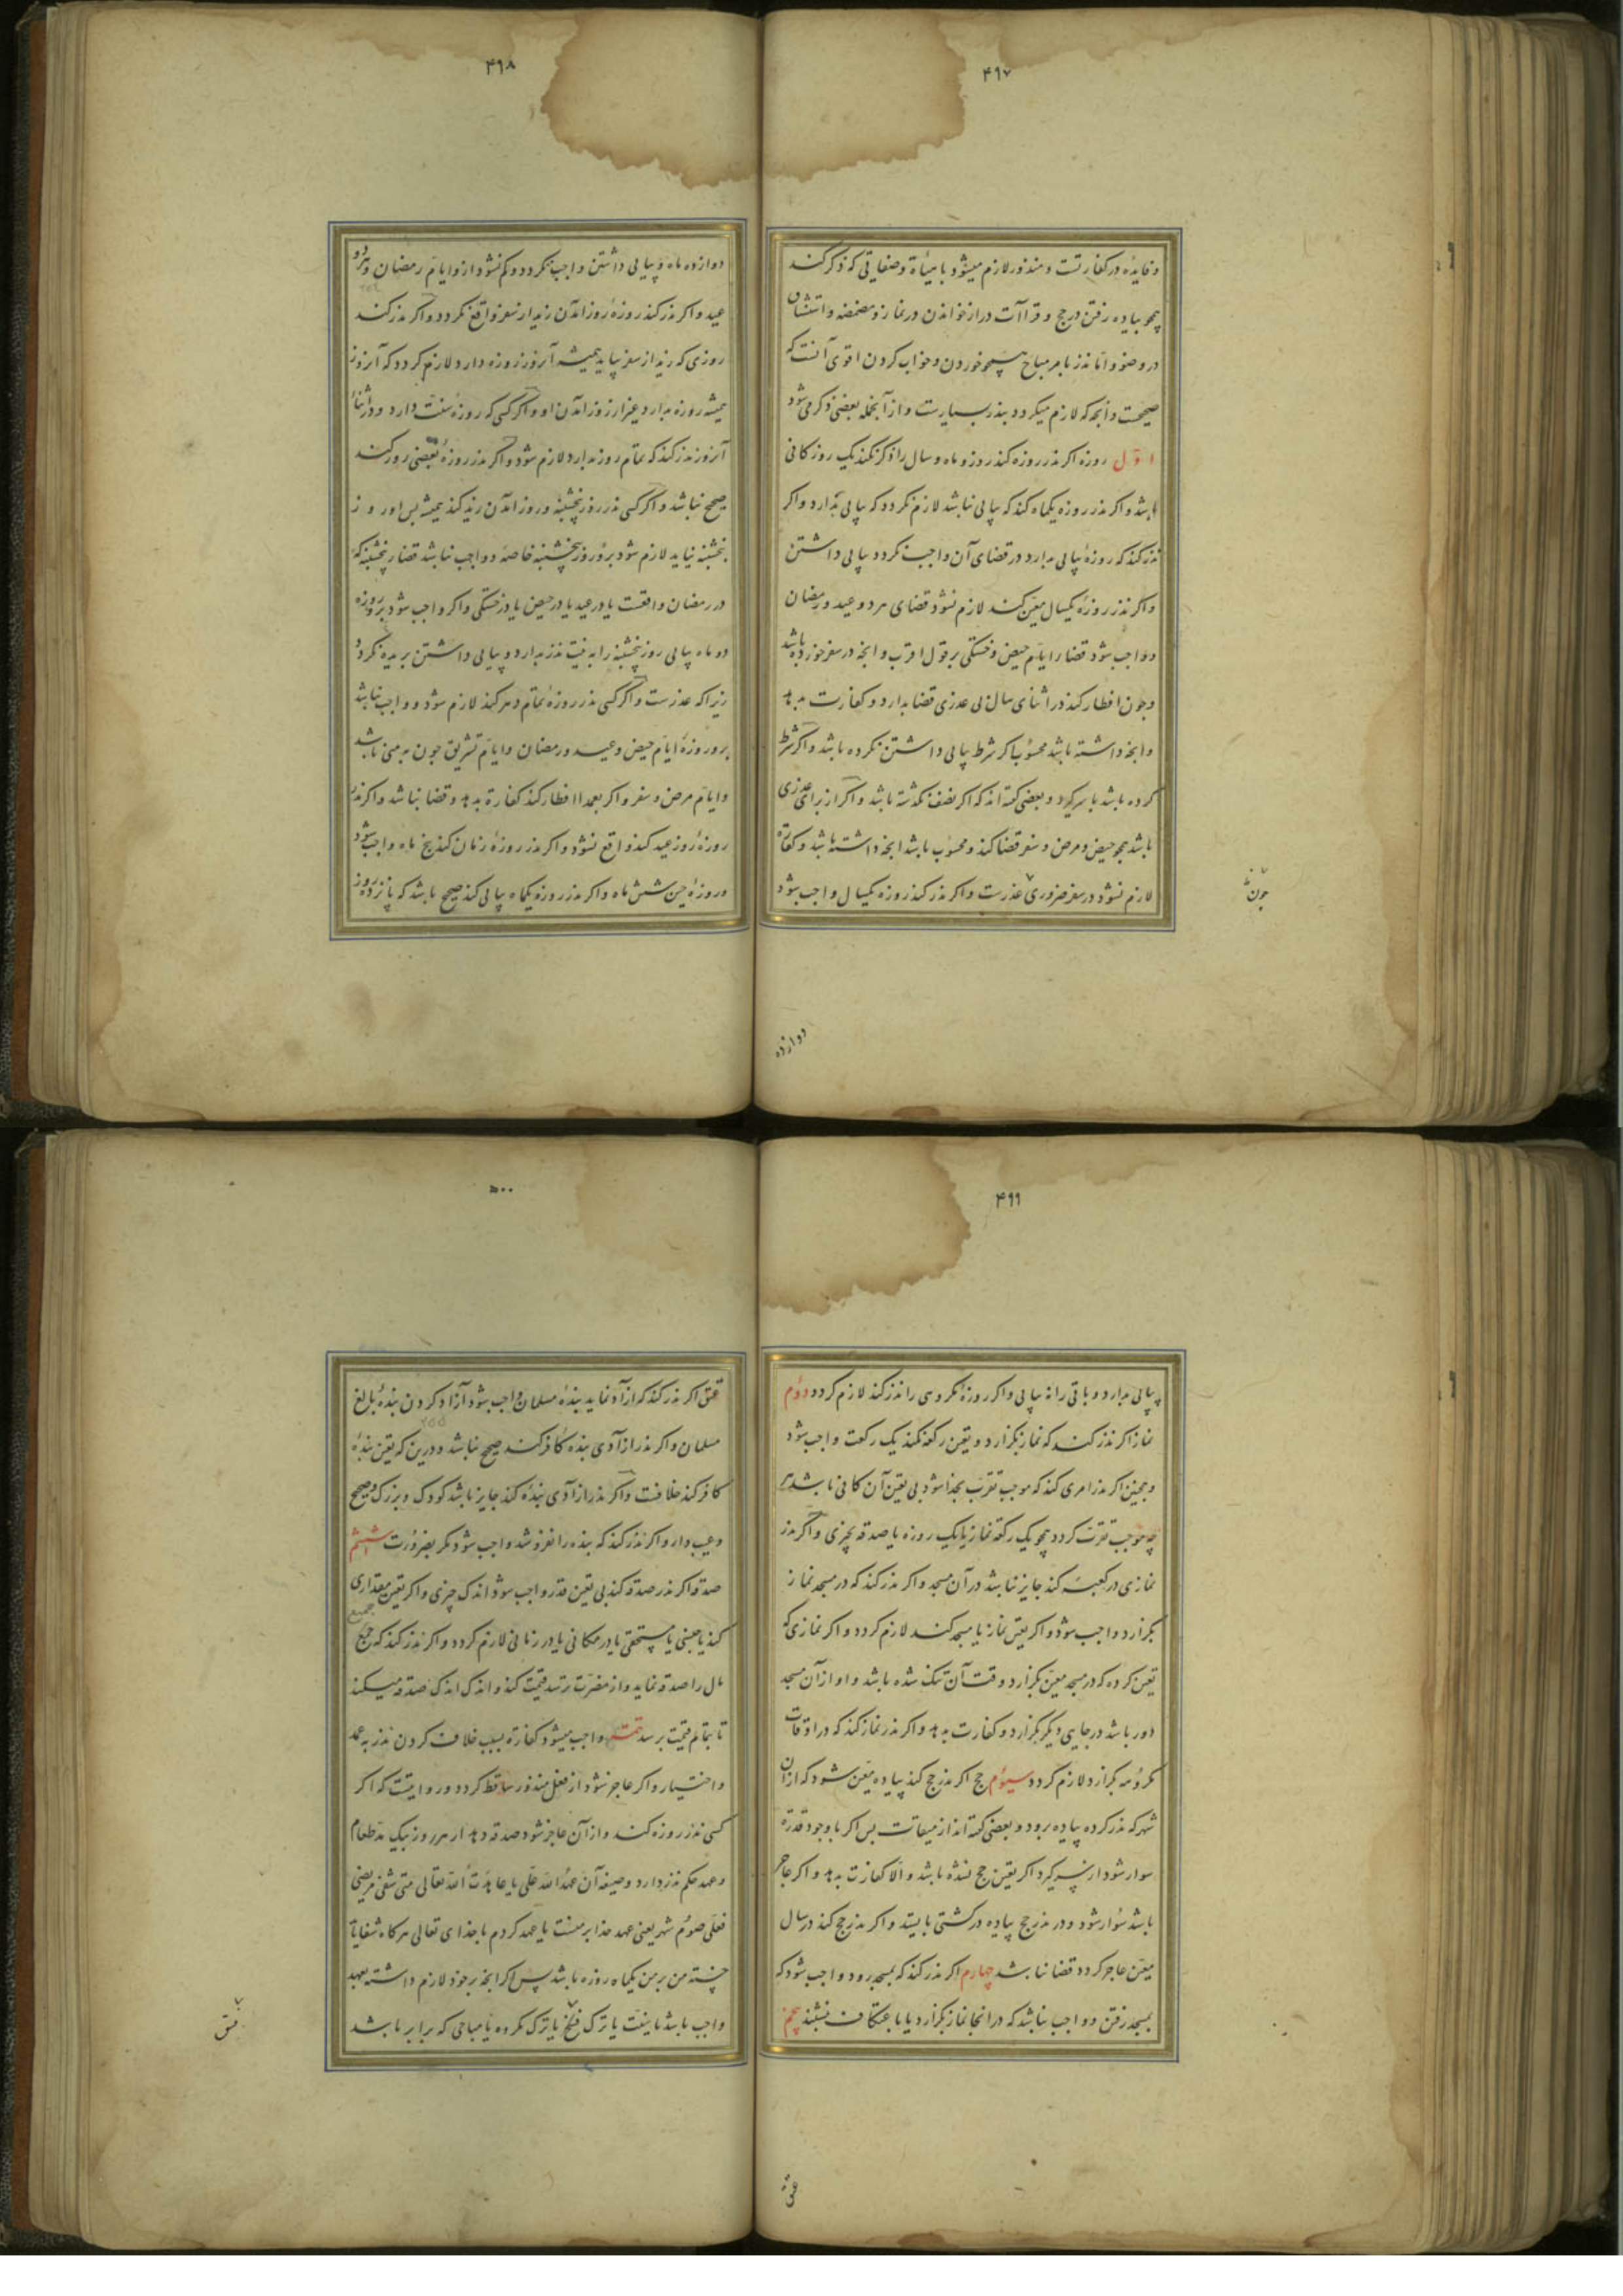 ۴۹۷
و فایده در کفارتست و منذور لازم میشود با هیأة و صفاتی که ذکر کند
همچو پیاده رفتن در حج و قراآت دراز خواندن در نماز و مضمضه و استنشاق
در وضو و اما نذر بامر مباح همچو خوردن و خواب کردن اقوی آنست که
صحیحست و انچه که لازم میکردد بنذر بسیارست و از آنجمله بعضی ذکر می شود
اول روزه اکر نذر روزه کند روز و ماه و سال را ذکر نکند یک روز کافی
باشد و اکر نذر روزه یکماه کند که پیاپی نباشد لازم نکردد که پیاپی بدارد و اکر
نذر کند که روزه پیاپی بدارد در قضای آن واجب نکردد پیاپی داشتن
و اکر نذر روزه یکسال معین کند لازم نشود قضای هر دو عید و رمضان
و واجب شود قضا را ایام حیض و خستکی بر قول اقرب و انچه در سفر خورده باشد
و چون افطار کند در اثنای سال بی عذری قضا بدارد و کفارت بدهد
و انچه داشته باشد محسوب اکر شرط پیاپی داشتن نکرده باشد و اکر شرط
کرده باشد با سر کیرد و بعضی کفته اند که اکر نصف نکذشته باشد و اکر از برای عذری
باشد همچو حیض و مرض و سفر قضا کند و محسوب باشد انچه داشته باشد و کفارة
لازم نشود در سفر ضروری عذرست و اکر نذر کند روزه یکسال واجب شود
چون
دوازده
۴۹۸
دوازده ماه و پیاپی داشتن واجب نکردد و کم نشود ازو ایام رمضان و هر دو
عید و اکر نذر کند روزۀ روز امدن زید از سفر واقع نکردد و اکر نذر کند
روزی که زید از سفر بیاید همیشه آنروز روزه دارد لازم کردد که آنروز
همیشه روزه بدارد غیر از روز امدن او و اکر کسی که روزۀ سنت دارد و در اثنا
آنروز نذر کند که تمام روز بدارد لازم شود و اکر نذر روزۀ بعضی روز کند
صحیح نباشد و اکر کسی نذر روز پنجشنبه و روز امدن زید کند همیشه پس اور و ز
پنجشنبه بیاید لازم شود برو روز پنجشنبه خاصه و واجب نباشد قضا پنجشنبه که
در رمضان واقعست یا در عید یا در حیض یا در خستکی و اکر واجب شود برو روزه
دو ماه پیاپی روز پنجشنبه را به نیت نذر بدارد و پیاپی داشتن بریده نکردد
زیراکه عذرست و اکر کسی نذر روزه تمام دهر کند لازم شود و واجب نباشد
برو روزۀ ایام حیض و عید و رمضان و ایام تشریق چون به منی باشد
و ایام مرض و سفر و اکر بعمدا افطار کند کفارة بدهد و قضا نباشد و اکر نذر
روزه روز عید کند واقع نشود و اکر نذر روزۀ زمان کند پنج ماه واجب شود
و روزۀ حین شش ماه و اکر نذر روزه یکماه پیاپی کند صحیح باشد که پانزده روز
۴۹۹
پیاپی بدارد و باقی را نه پیاپی و اکر روزه مکروهی را نذر کند لازم کردد دوم
نماز اکر نذر کند که نماز بکزارد و تعین رکعه نکند یک رکعت واجب شود
و همچنین اکر نذر امری کند که موجب تقرب بخدا شود بی تعین آن کافی باشد هر
چه موجب تقرب کردد همچو یک رکعه نماز یا یک روزه یا صدقه بچیزی و اکر نذر
نمازی در کعبه کند جایز نباشد در آن مسجد و اکر نذر کند که در مسجد نماز
بکزارد واجب شود و اکر تعین نماز یا مسجد کند لازم کردد و اکر نمازی که
تعین کرده که در مسجد معین بکزارد وقت آن تنک شده باشد و او از آن مسجد
دور باشد در جایی دیکر بکزارد و کفارت بدهد و اکر نذر نماز کند که در اوقات
مکروهه بکزارد لازم کردد سیوم حج اکر نذر حج کند پیاده معین شود که از آن
شهر که نذر کرده پیاده برود و بعضی کفته اند از میقات پس اکر با وجود قدرة
سوار شود از سر کیرد اکر تعین حج نشده باشد و الا کفارت بدهد و اکر عاجز
باشد سوار شود و در نذر حج پیاده در کشتی بایستد و اکر نذر حج کند در سال
معین عاجز کردد قضا نباشد چهارم اکر نذر کند که بمسجد رود واجب شود که
بمسجد رفتن و واجب نباشد که در انجا نماز بکزارد یا باعتکاف نشیند پنجم
عتق
۵۰۰
عتق اکر نذر کند که ازاد نماید بندۀ مسلمان واجب شود آزاد کردن بندۀ بالغ
۲۵۵
مسلمان و اکر نذر ازادی بنده کافر کند صحیح نباشد و درین که تعین بندۀ
کافر کند خلافست و اکر نذر ازادی بنده کند جایز باشد کودک و بزرک و صحیح
و عیب دار و اکر نذر کند که بنده را نفروشد واجب شود مکر بضرورت ششم
صدقه اکر نذر صدقه کند بی تعین قدر واجب شود اندک چیزی و اکر تعین مقداری
جمیع
کند یا جنسی یا مستحقی یا در مکانی یا در زمانی لازم کردد و اکر نذر کند که جمیع
مال را صدقه نماید و از مضرت ترسد قیمت کند و اندک اندک صدقه میکند
تا بتمام قیمت برسد تتمه واجب میشود کفارة بسبب خلاف کردن نذر به عمد
و اختیار و اکر عاجز شود از فعل منذور ساقط کردد و روایتست که اکر
کسی نذر روزه کند و از آن عاجز شود صدقه دهد از هر روز بیک مد طعام
و عهد حکم نذر دارد و صیغه آن عهد الله علی یا عاهدت الله تعالی متی شفی مریضی
فعلی صوم شهر یعنی عهد خدا بر منست یا عهد کردم با خدای تعالی هر کاه شفا یابد
خسته من بر من یکماه روزه باشد پس اکر انچه بر خود لازم داشته بعهد
واجب باشد یا سنت یا ترک قبیح یا ترک مکروه یا مباحی که برابر باشد